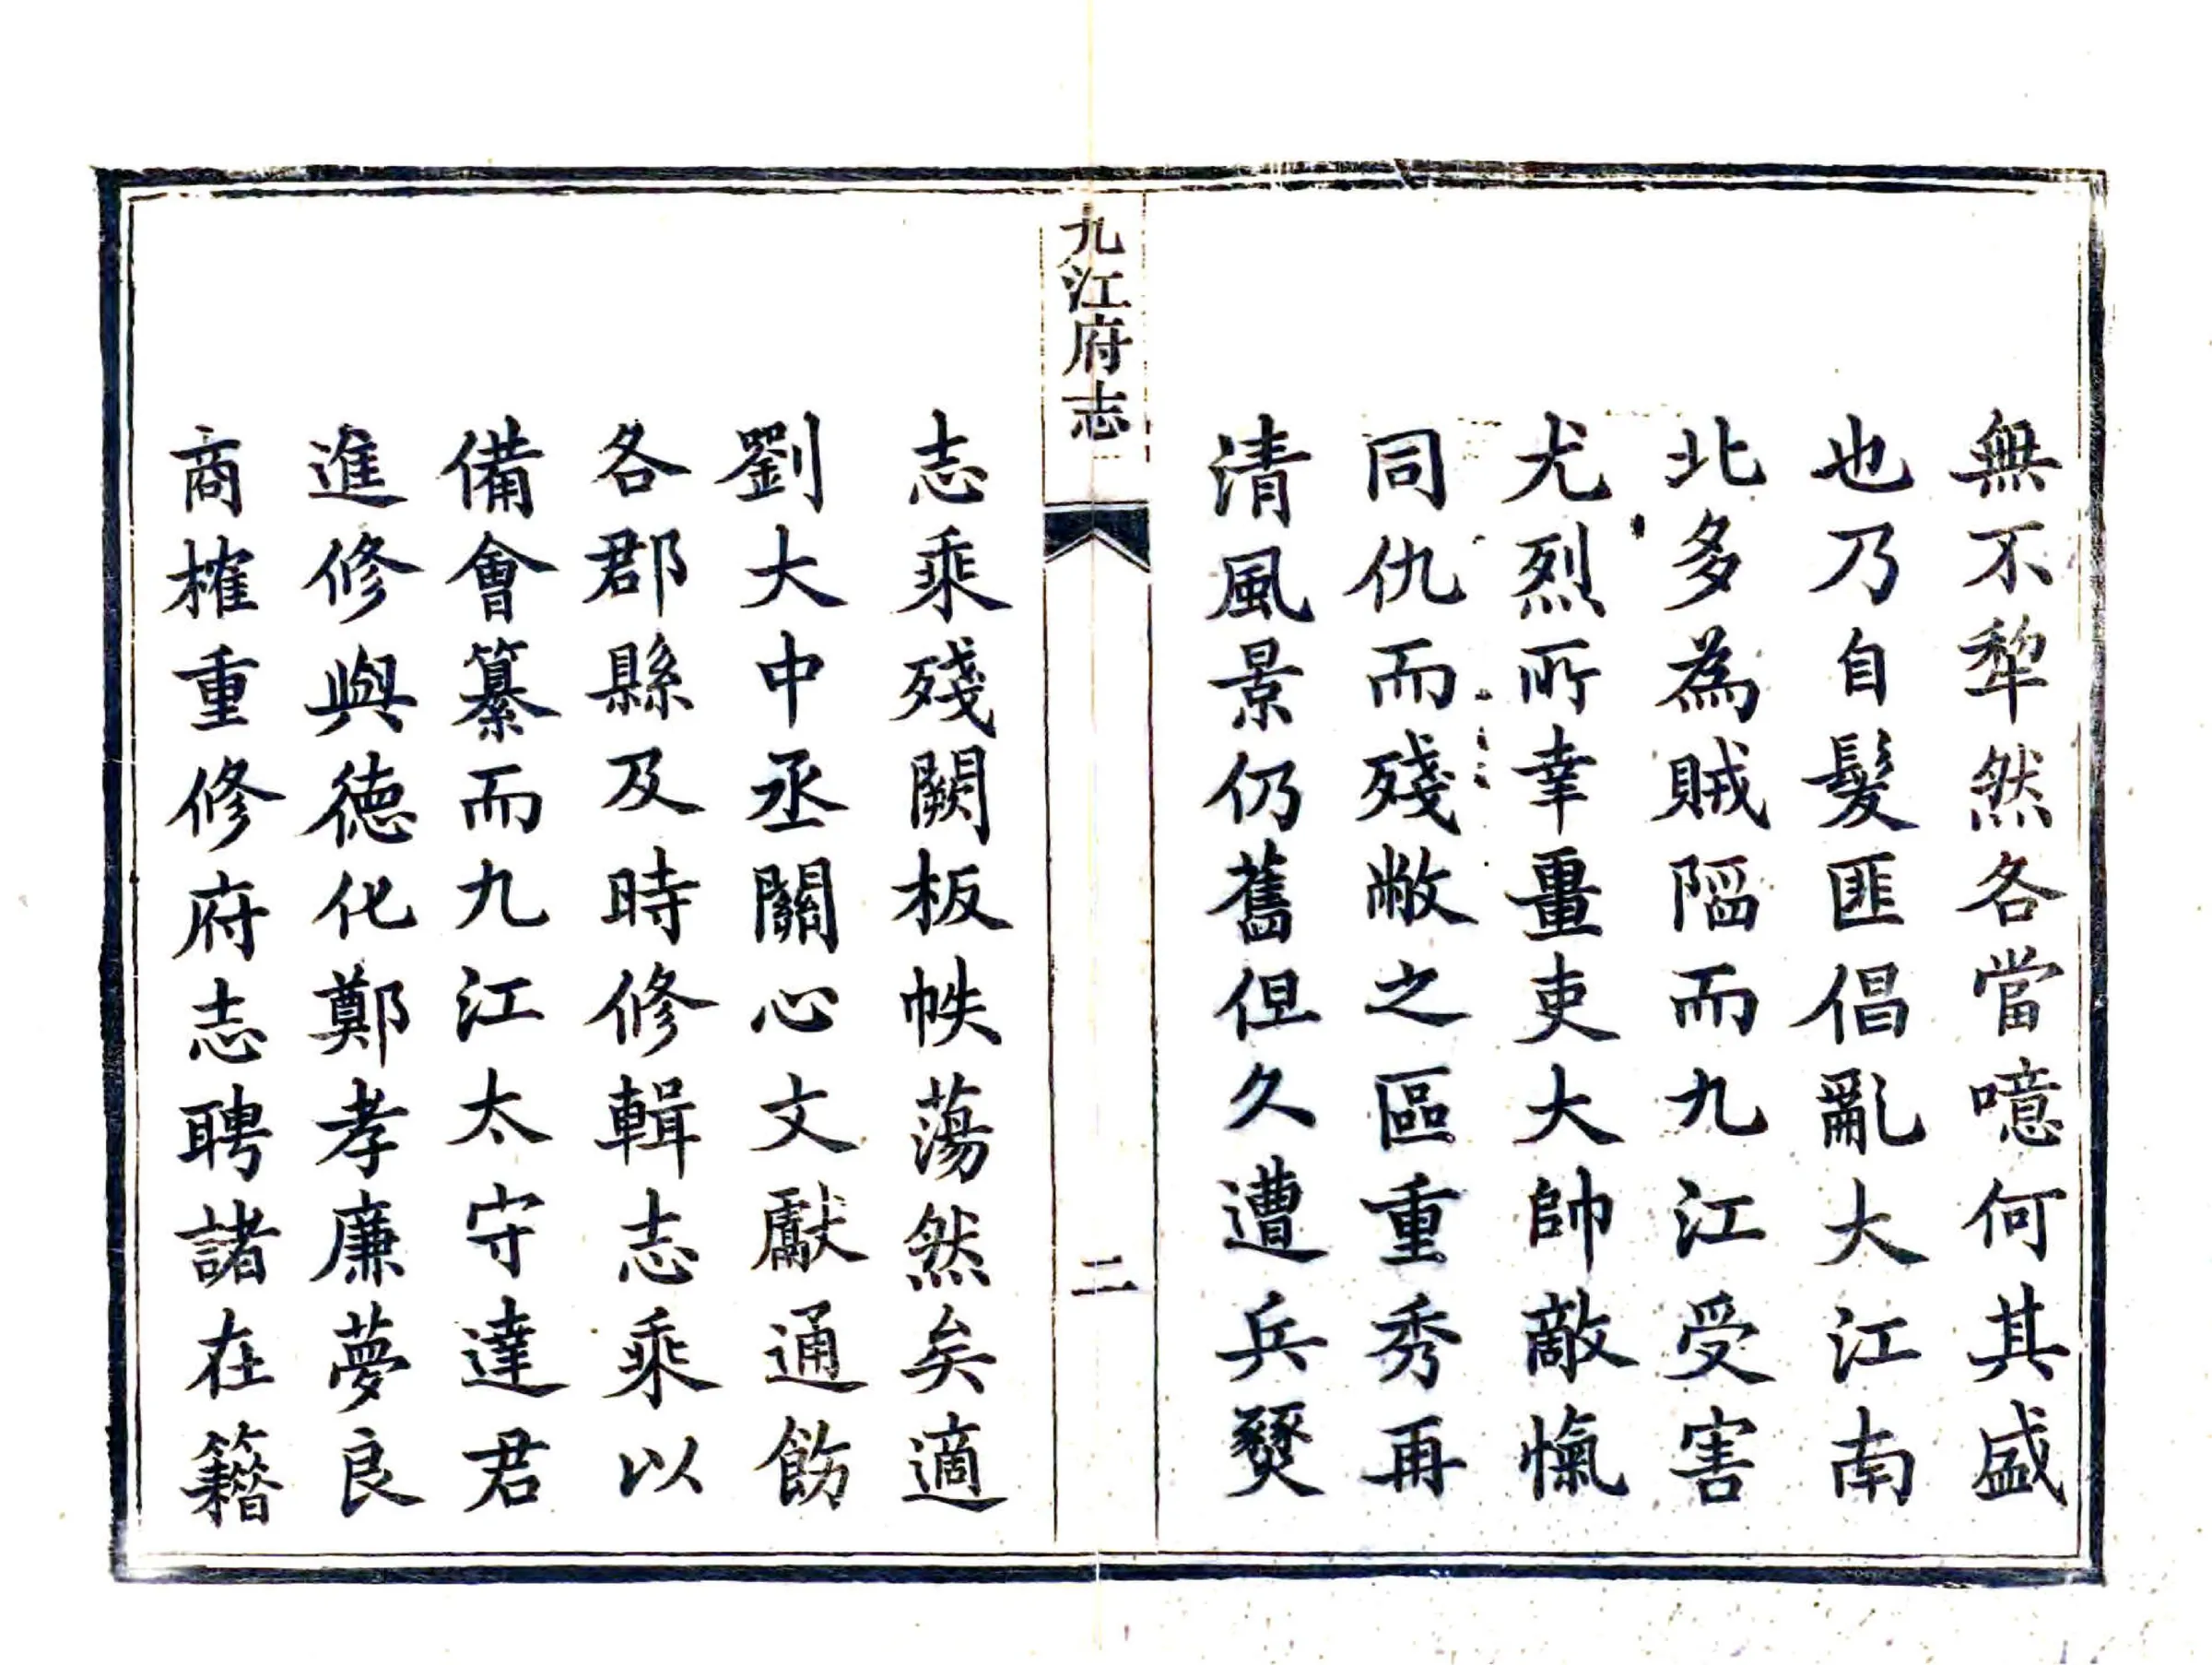 無不犂然各當噫何其盛
也乃自髮匪倡亂大江南
北多為賊陷而九江受害
尤烈所幸畺吏大帥敵愾
同仇而殘敝之區重秀再
清風景仍舊但久遭兵燹
九江府志
二
志乘殘闕板帙蕩然矣適
劉大中丞關心文獻通飭
各郡縣及時修輯志乘以
備會纂而九江太守達君
進修與德化鄭孝廉夢良
商榷重修府志聘諸在籍